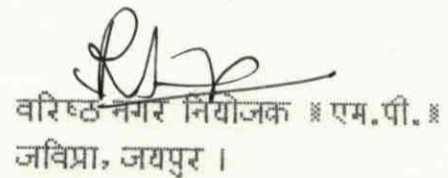 वरिष्ठ नगर नियोजक ॥ एम.पी. ॥
जविप्रा, जयपुर ।